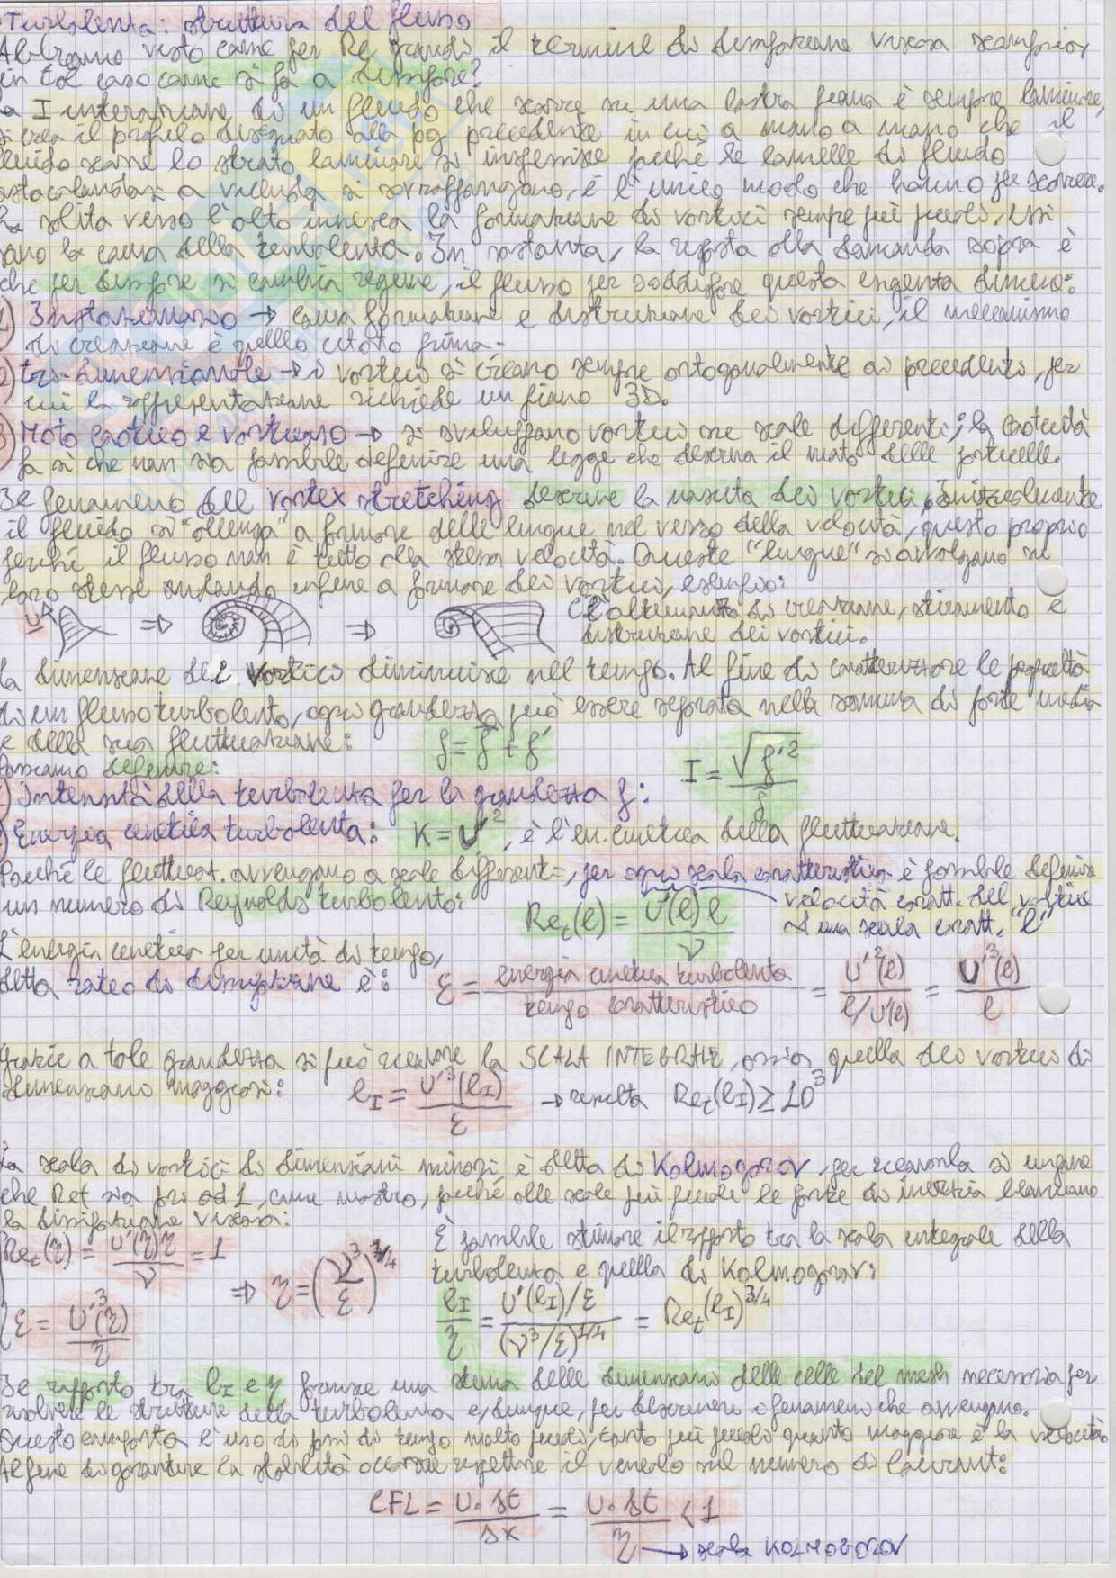 Turbolenza: struttura del flusso
Abbiamo visto come per Re grandi il termine di dissipazione viscosa scompaia,
in tal caso come si fa a dissipare?
La I interazione di un fluido che scorre su una lastra piana è sempre laminare,
si crea il profilo disegnato alla pg precedente in cui a mano a mano che il
fluido scorre lo strato laminare si ispessisce perché le lamelle di fluido
ostacolandosi a vicenda si sovraffangano, è l'unico modo che hanno per scorrere.
La salita verso l'alto innesca la formazione di vortici sempre più piccoli, essi
sono la causa della turbolenza. In sostanza, la risposta alla domanda sopra è
che per dissipare si cambia regime, il flusso per soddisfare questa esigenza diviene:
1) Instazionario → causa formazione e distruzione dei vortici, il meccanismo
di creazione è quello citato prima.
2) tri-dimensionale → i vortici si creano sempre ortogonalmente ai precedenti, per
cui la rappresentazione richiede un piano 3D.
3) Moto caotico e vorticoso → si sviluppano vortici su scale differenti; la caoticità
fa sì che non sia possibile definire una legge che descriva il moto delle particelle.
Il fenomeno del vortex stretching descrive la nascita dei vortici. Inizialmente
il fluido si "allunga" a formare delle lingue nel verso della velocità, questo proprio
perché il flusso non è tutto alla stessa velocità. Queste "lingue" si avvolgono su
loro stesse andando infine a formare dei vortici, esempio:
U ⇒ ⇒ L'alternanza di creazione, stiramento e
distruzione dei vortici.
La dimensione dei vortici diminuisce nel tempo. Al fine di caratterizzare le proprietà
di un flusso turbolento, ogni grandezza può essere separata nella somma di parte media
e della sua fluttuazione: f = f̄ + f'
Possiamo definire:
1) Intensità della turbolenza per la grandezza f: I = √f'² / f̄
2) Energia cinetica turbolenta: K = U'², è l'en. cinetica della fluttuazione.
Poiché le fluttuaz. avvengono a scale differenti, per ogni scala caratteristica è possibile definire
un numero di Reynolds turbolento: Re_t(l) = U'(l) l / ν → velocità caratt. del vortice
di una scala caratt. "l"
L'energia cinetica per unità di tempo,
detta rateo di dissipazione è: ε = energia cinetica turbolenta / tempo caratteristico = U'²(l) / l/U'(l) = U'³(l) / l
Grazie a tale grandezza si può ricavare la SCALA INTEGRALE, ossia quella dei vortici di
dimensioni maggiori: l_I = U'³(l_I) / ε → risulta Re_t(l_I) ≥ 10³
La scala di vortici di dimensioni minori è detta di Kolmogorov, per ricavarla si impone
che Ret sia pari ad 1, come mostro, perché alle scale più piccole le forze di inerzia bilanciano
la dissipazione viscosa:
Re_t(η) = U'(η) η / ν = 1
ε = U'³(η) / η
⇒ η = (ν³ / ε)^1/4
È possibile stimare il rapporto tra la scala integrale della
turbolenza e quella di Kolmogorov:
l_I / η = U'(l_I)/ε / (ν³/ε)^1/4 = Re_t(l_I)^3/4
Il rapporto tra l_I e η fornisce una stima delle dimensioni delle celle del mesh necessaria per
risolvere le strutture della turbolenza e, dunque, per descrivere i fenomeni che avvengono.
Questo comporta l'uso di passi di tempo molto piccoli, tanto più piccoli quanto maggiore è la velocità.
Al fine di garantire la stabilità occorre rispettare il vincolo sul numero di Courant:
CFL = U · Δt / Δx = U · Δt / η < 1
→ scala KOLMOGOROV